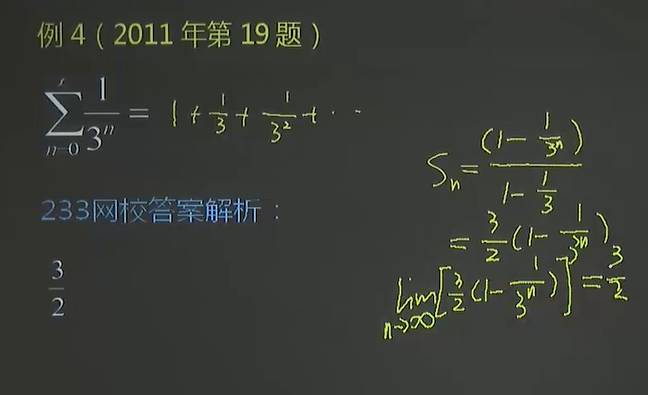 例 4（2011 年第 19 题）
\sum_{n=0} \frac{1}{3^n} = 1 + \frac{1}{3} + \frac{1}{3^2} + \cdots
233网校答案解析：
\frac{3}{2}
S_n = \frac{(1 - \frac{1}{3^n})}{1 - \frac{1}{3}}
= \frac{3}{2}(1 - \frac{1}{3^n})
\lim_{n \to \infty} [\frac{3}{2}(1 - \frac{1}{3^n})] = \frac{3}{2}